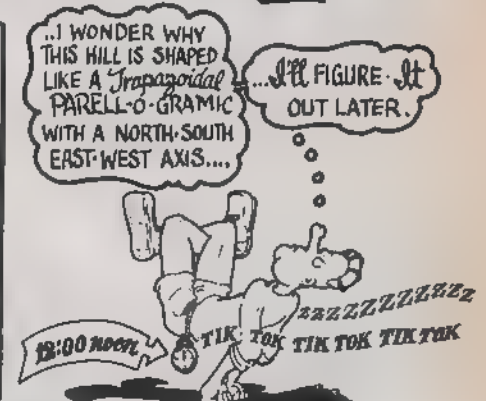 ..I WONDER WHY
THIS HILL IS SHAPED
LIKE A Trapazoidal
PARELL-O-GRAMIC
WITH A NORTH-SOUTH
EAST-WEST AXIS....
...I'll FIGURE It
OUT LATER.
zzzZZZZZZZZz
TIK TOK TIK TOK TIK TOK
12:00 noon